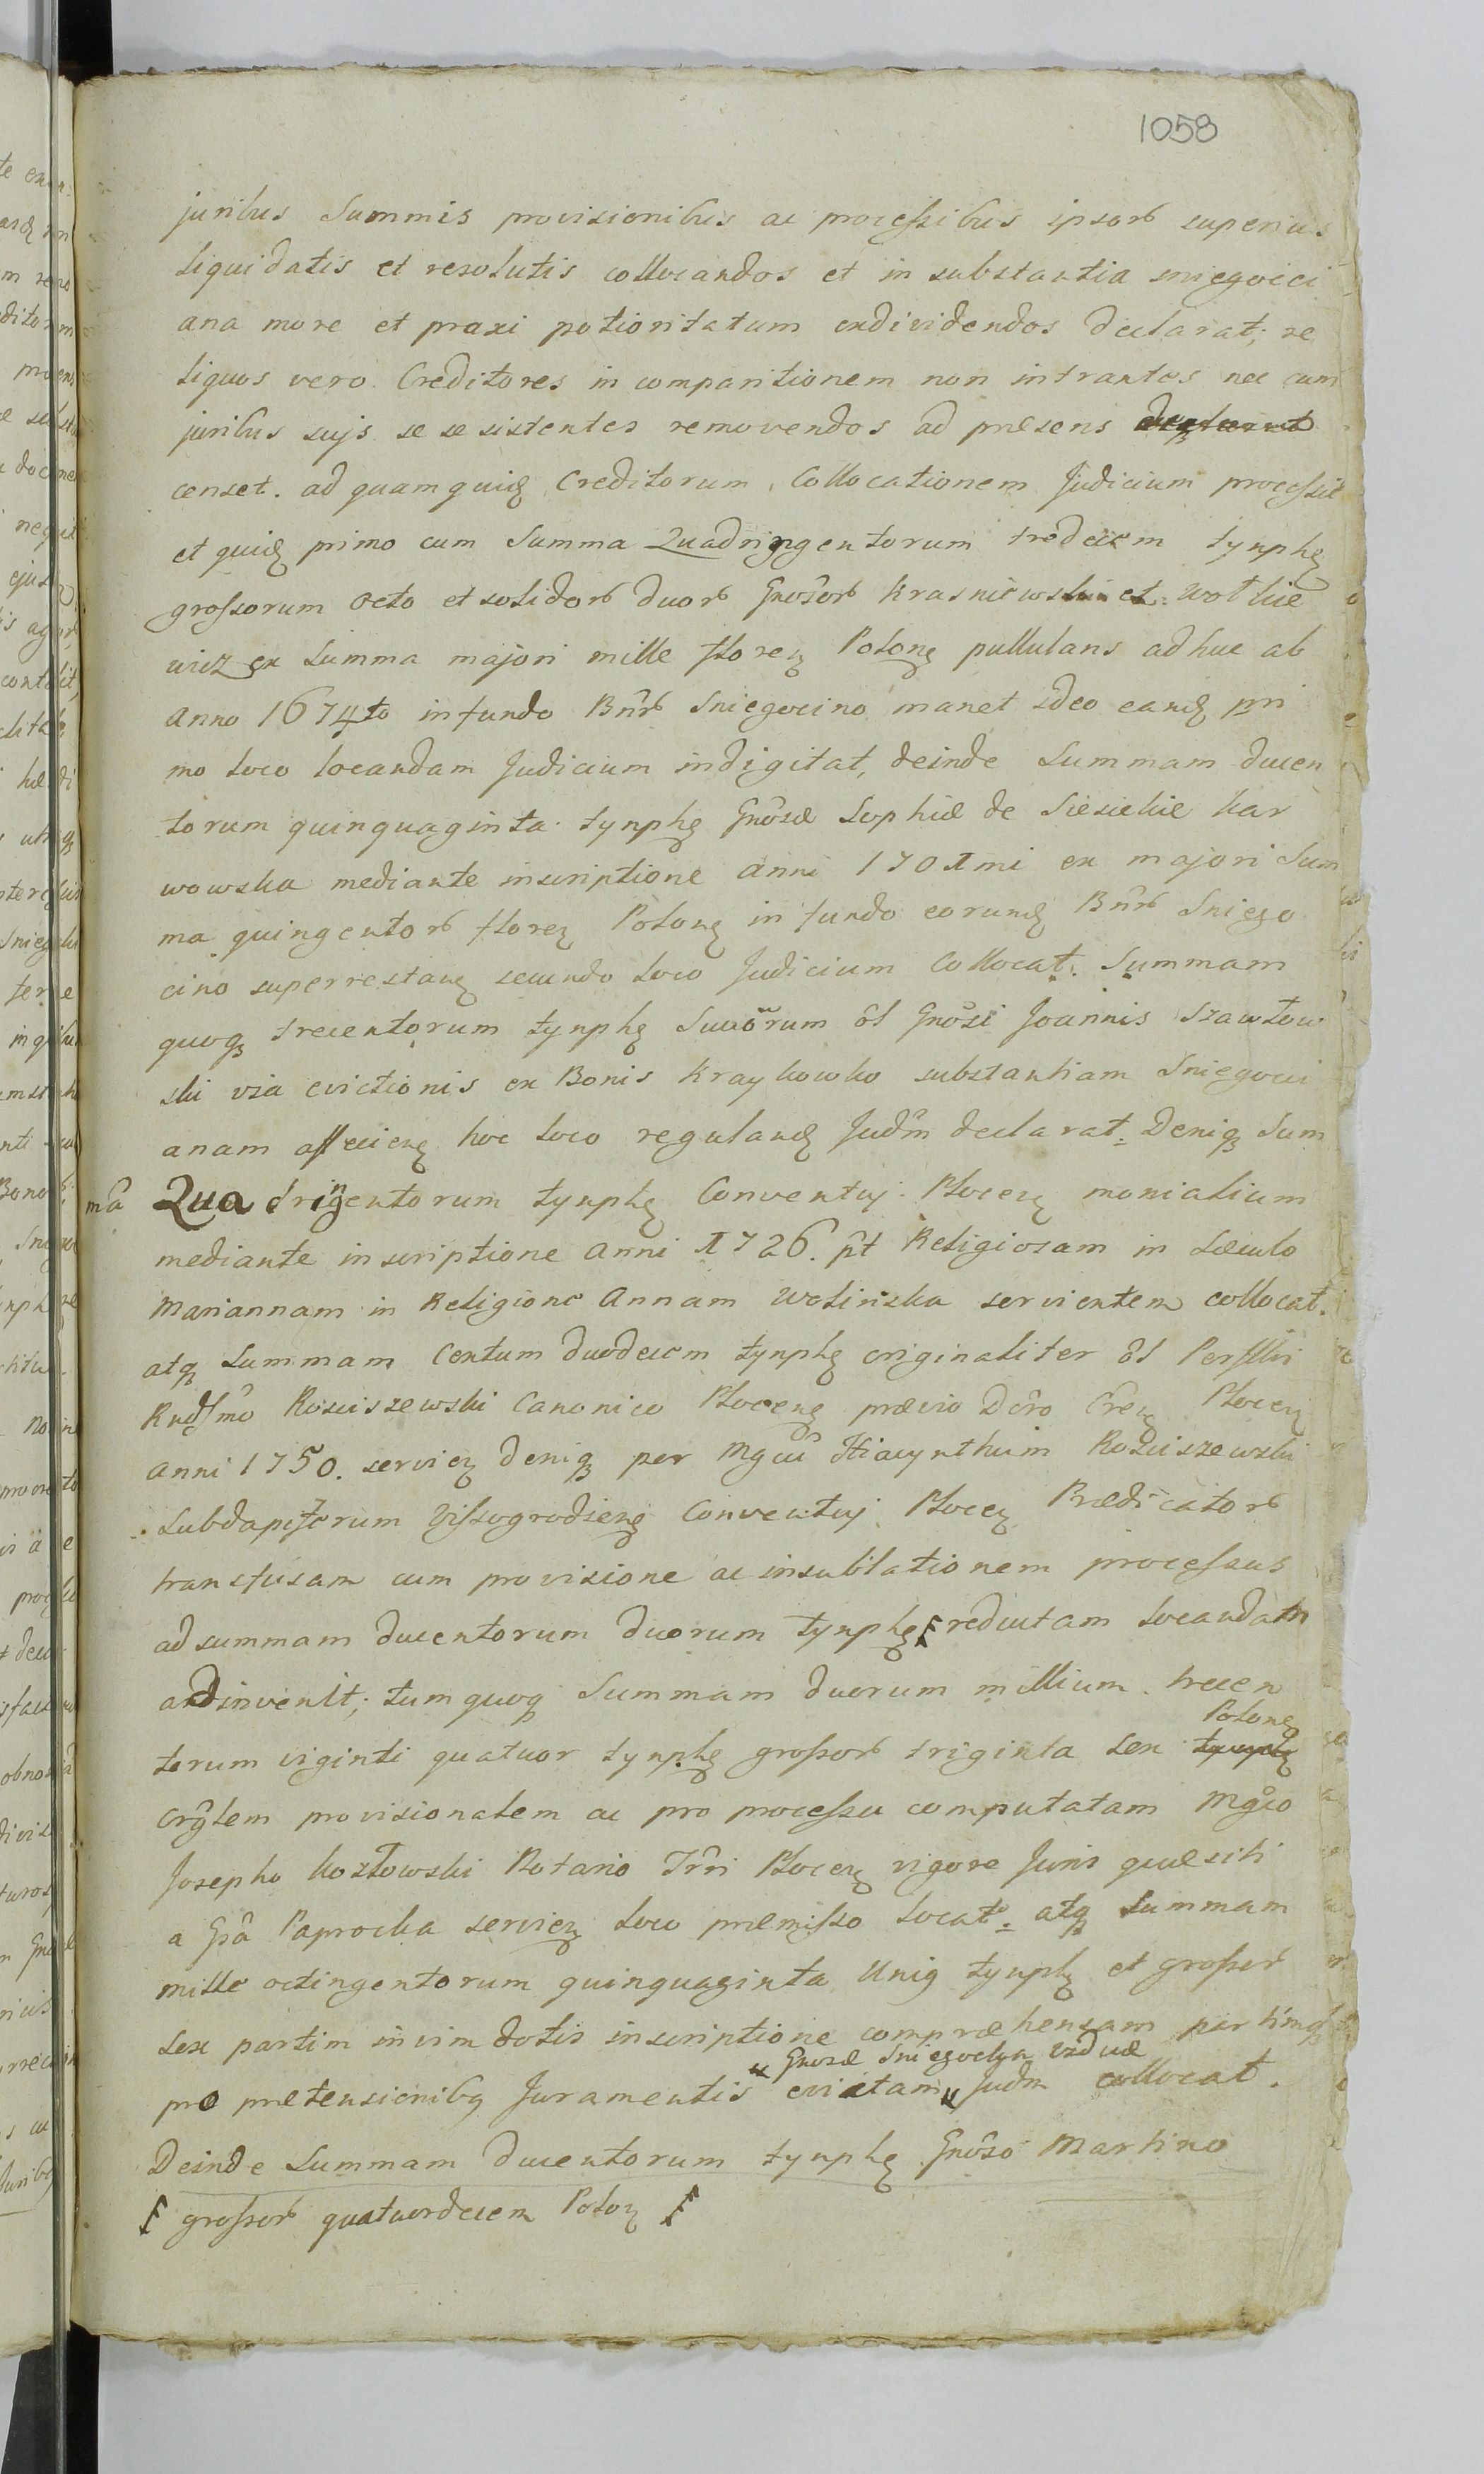 1058
juribus Summis provisionibus ac processibus ipsorb superius
liquidatis et resolutis collocandos et in substantia sniegoici
ana more et praxi potioritatum exdividendos declarat; re
liquos vero Creditores in comparitionem non intrantes nec cum
juribus suis se se sistentes removendos ad præsens
censet. ad quam quidę Creditorum Collocationem Judicium processit
et quidę primo cum Summa Quadringentorum tredecem tynphę
grossorum octo et solidorb duorb Gnosorb Krasniewski et Wotkie
wicz ex Summa majori mille florenę Polonę pullulans adhuc ab
Anno 1674to in fundo Bnrb Sniegocino manet ideo eandę pri
mo loco locandam Judicium indigitat, deinde Summam ducen
torum quinquaginta tynphę Gnôsæ Sophiæ de Siesickie Kar
wowska mediante inscriptione anni 1701mi ex majori Sum
ma quingentorb florenę Polonę in fundo eorundę Bnrb Sniego
cino superrestanę secundo loco Judicium Collocat. Summam
quoqę trecentorum tynphę Succôrum ôl Gnôsi Joannis Szawłow
ski via evictionis ex Bonis Kraykowko substantiam Sniegoci
anam afficienę hoc loco regulandę Judm declarat. Deniqę Sum
mâ Quadringentorum tynphę Conventuj Plocenę monialium
mediante inscriptione anni 1726. pt Religiosam in Sæculo
Mariannam in Religione Annam Wolinska servientem collocat.
atqę Summam Centum duodecem tynphę originaliter ôl Perllri
Rndssmo Rosciszewski Canonico Plocenę prævio Dcro Plocenę
anni 1750. servienę deniqę per Mgcu Hiacynthum Rosciszewski
Subdapiferum Vissogrodienę Conventuj Plocenę Prædicatorb
transfusam cum provisione ac insublationem processus
ad summam ducentorum duorum tynphę redductam locandam
adinvenit; tum quoqę Summam duorum millium trecen
Polonę
torum viginti quatuor tynphę grossorb triginta sex tynphę
orglem provisionalem ac pro processu computatam Mgco
Josepho Kozłowski Notario Trri Plocenę vigore Juris quæsiti
a Gsâ Paprocka servienę loco præmisso locat. atqę Summam
mille octingentorum quinquaginta Unią tynphę et grossorb
sex partim in vim dotis inscriptione compræhensam partimqę
Gnosæ Sniegockya viduæ
pro prætensionibę Juramentis evictam Judm collocat.
Deinde Summam ducentorum tynphę Gnôso Martino
grossorb quatuordecem Polonę